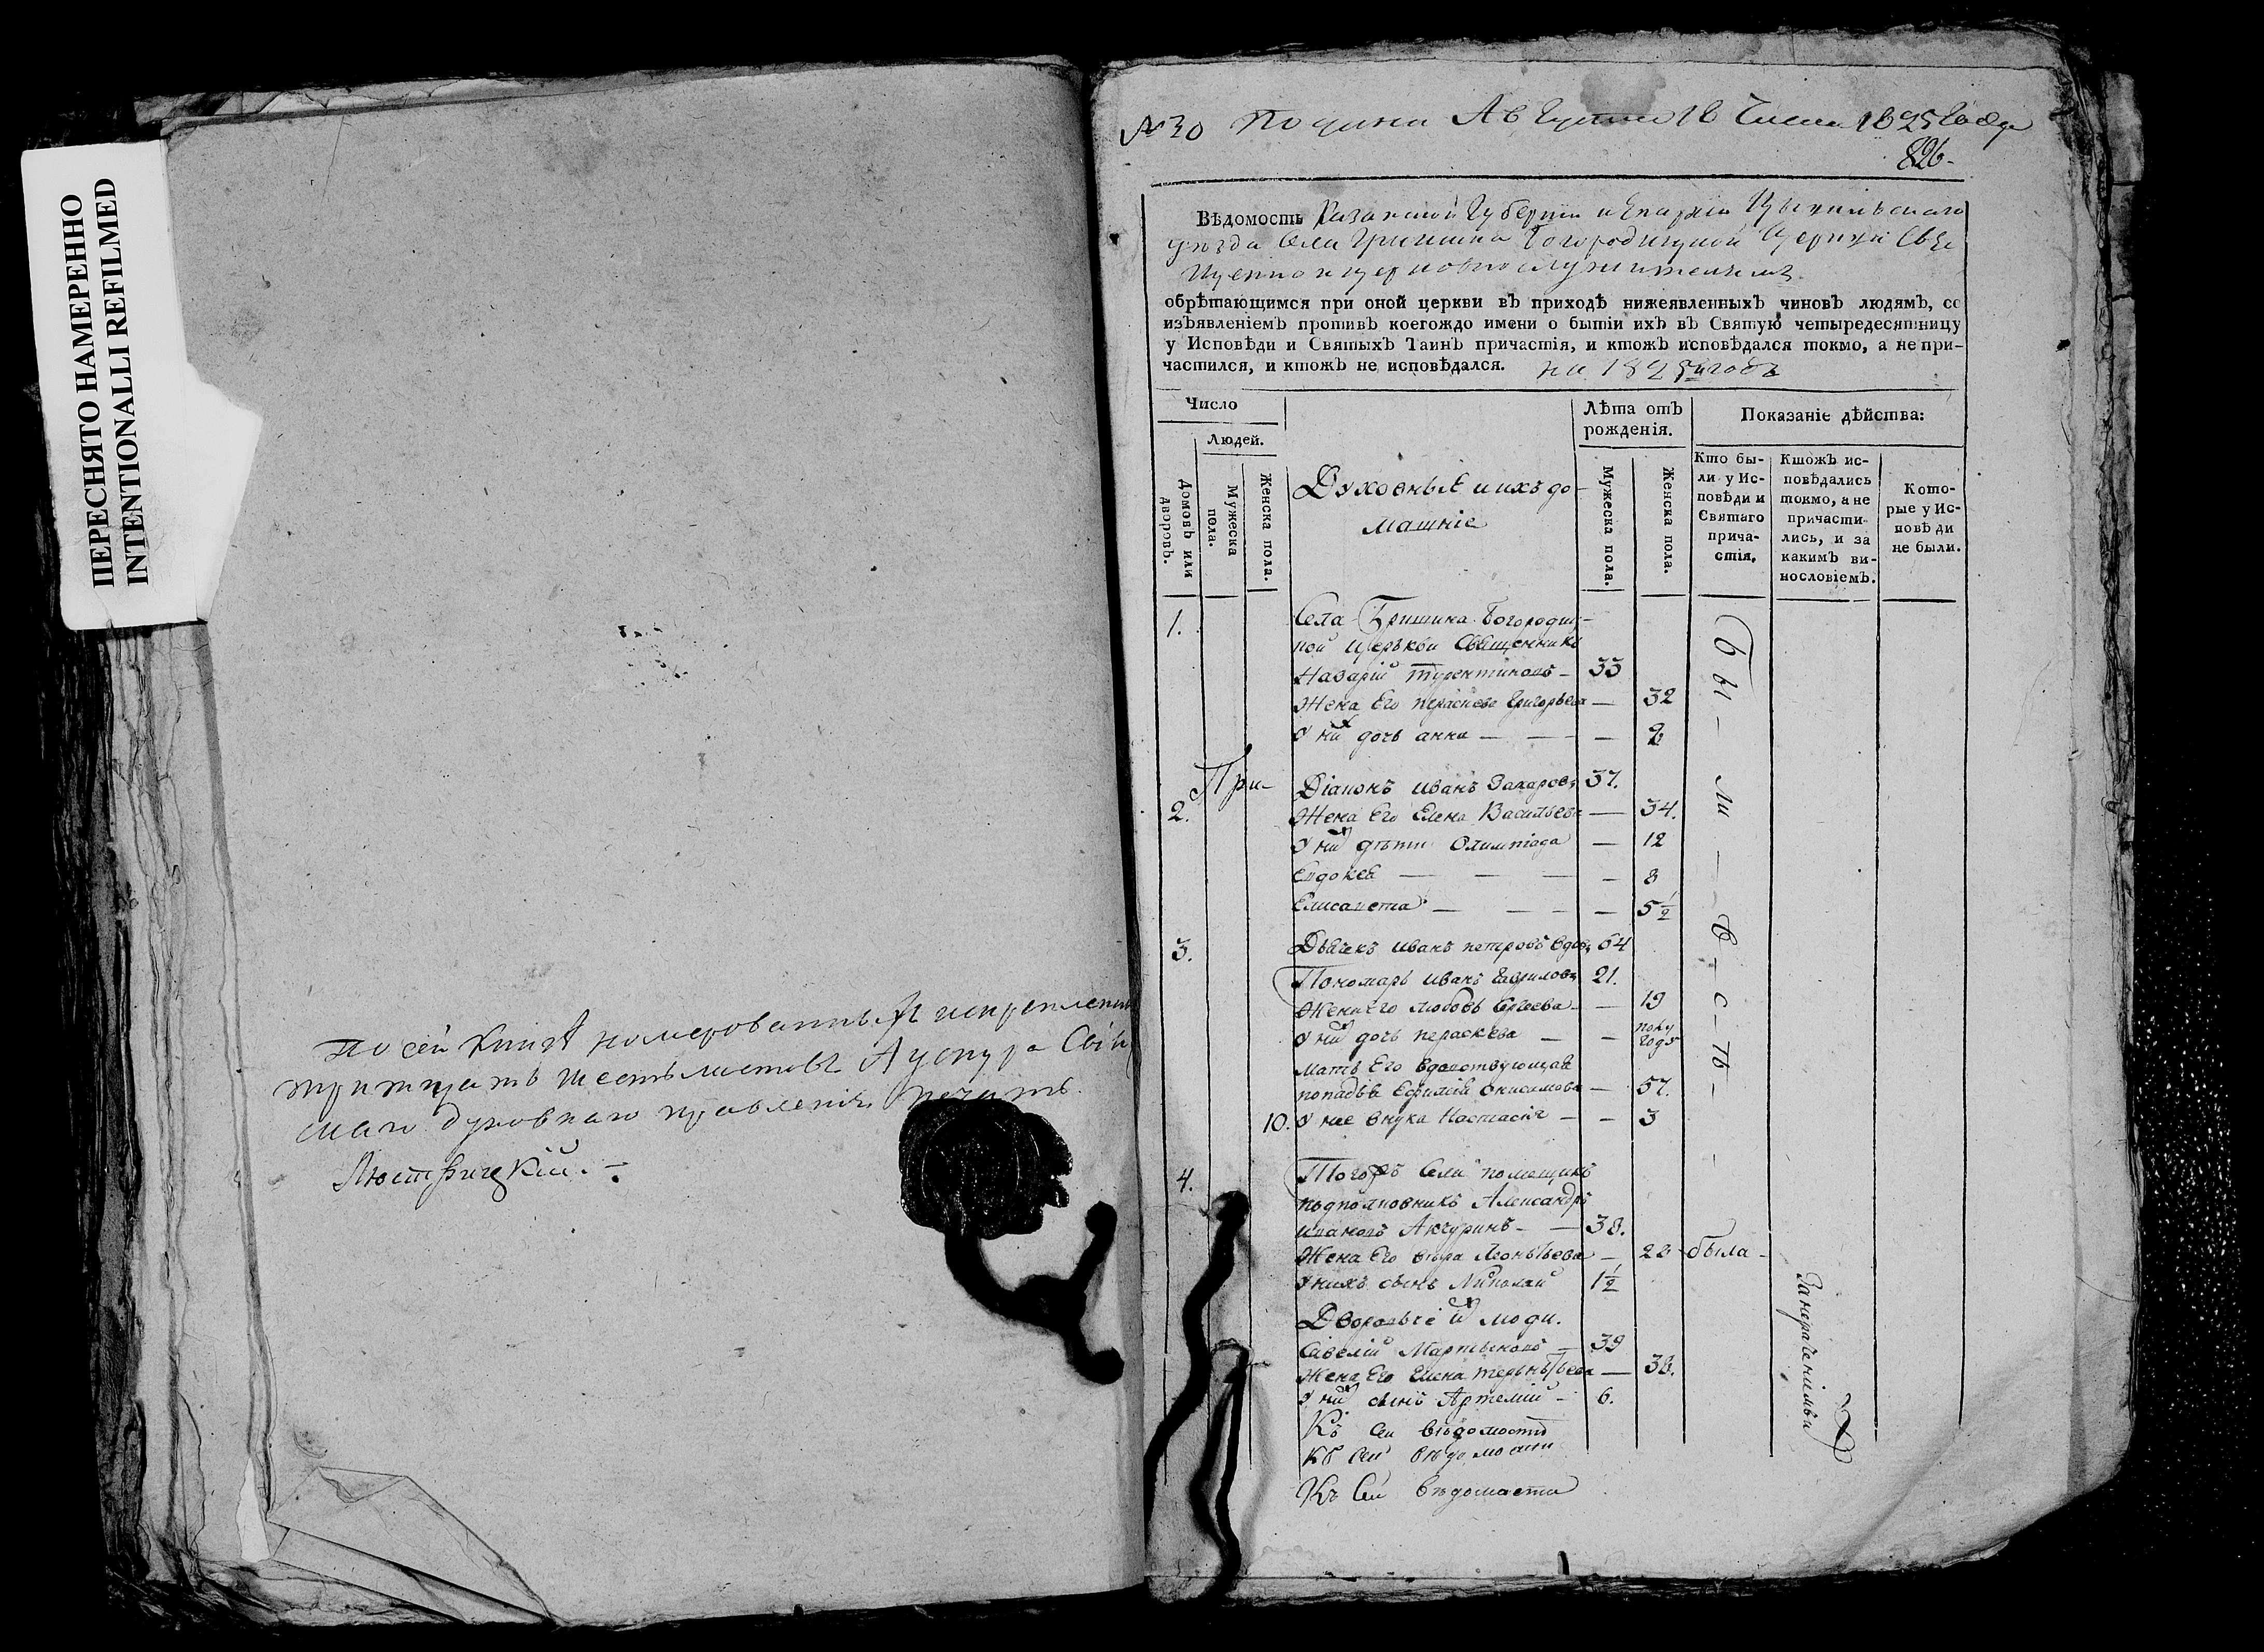 ПЕРЕСНЯТО НАМЕРЕННО
INTENTIONALLI REFILMED
По сей книгѣ номерованныхъ
тритцать шесть листовъ
духовнаго правленія печать
№ 30 Августа 18 числа 1825 года
826.
Вѣдомость Казанской Губерніи и Епархіи Цывильскаго
уѣзда Села Гришина Богородицкой Церкви Свя
щенно и церковнослужителямъ
обрѣтающимся при оной церкви въ приходѣ нижеявленныхъ чиновъ людямъ, со
изъявленіемъ противъ коегождо имени о бытіи ихъ въ Святую четыредесятницу
у Исповѣди и Святыхъ Таинъ причастія, и ктожъ исповѣдался токмо, а не при-
частился, и ктожъ не исповѣдался. на 1825й годъ
Число
Людей.
Домовъ или дворовъ.
Мужеска пола.
Женска пола.
Духовныѣ и ихъ до-
машніе
Лѣта отъ
рожденія.
Мужеска пола.
Женска пола.
Показаніе дѣйства:
Кто бы-
ли у Ис-
повѣди и
Святаго
прича-
стія.
Ктожъ ис-
повѣдались
токмо, а не
причасти-
лись, и за
какимъ ви-
нословіемъ.
Кото-
рые у Ис-
повѣди
не были.
1. Села Гришина Богородиц-
кой церькви Священникъ
Назарій – 33
Жена Его Параскева Григорьева — 32
У них дочь анна — — — 2
При-
2. Діаконъ иванъ Захаровъ 37.
Жена Его Елена Васильева — 34.
У них дѣти Олимпіада — 12
Евдокея — — — 8
Елисавета — — — 5 1/2
3. Дьячекъ иванъ петровъ вдовъ 64
Пономарь иванъ Гавриловъ 21.
Жена Его любовь — 19
У них дочь параскева — — полугода
мать Его вдовствующая
попадья Ефимія Онисимова — 57.
10. У нее внука Настасія — — 3
Бы – ли — – в – с – ѣ –
4. Тогожъ Села помещикъ
подполковникъ Александръ
ивановъ Акчуринъ — 38.
Жена Его вѣра Леонтьева — 22 была –
У нихъ сынъ Николай 1 1/2
Дворовые их люди.
Савелій Мартыновъ — 39
Жена Его Елена Терентьева — 38.
У них сынъ Артемій – 6.
Къ Сей вѣдомости
Къ Сей вѣдомости
Къ Сей вѣдомости